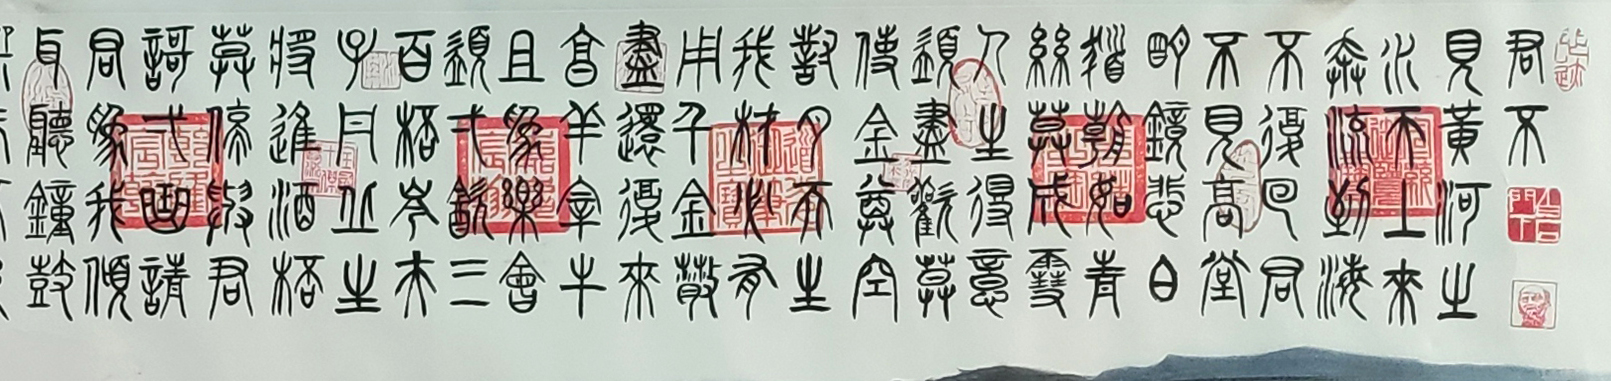 君不
見黃河之
水天上來
奔流到海
不復回君
不見高堂
明鏡悲白
髮朝如青
絲莫成雪
人生得意
須盡歡莫
使金尊空
對月天生
我材必有
用千金散
盡還復來
烹羊宰牛
且為樂會
須一飲三
百杯岑夫
子丹丘生
將進酒杯
莫停與君
歌一曲請
君為我傾
耳聽鐘鼓